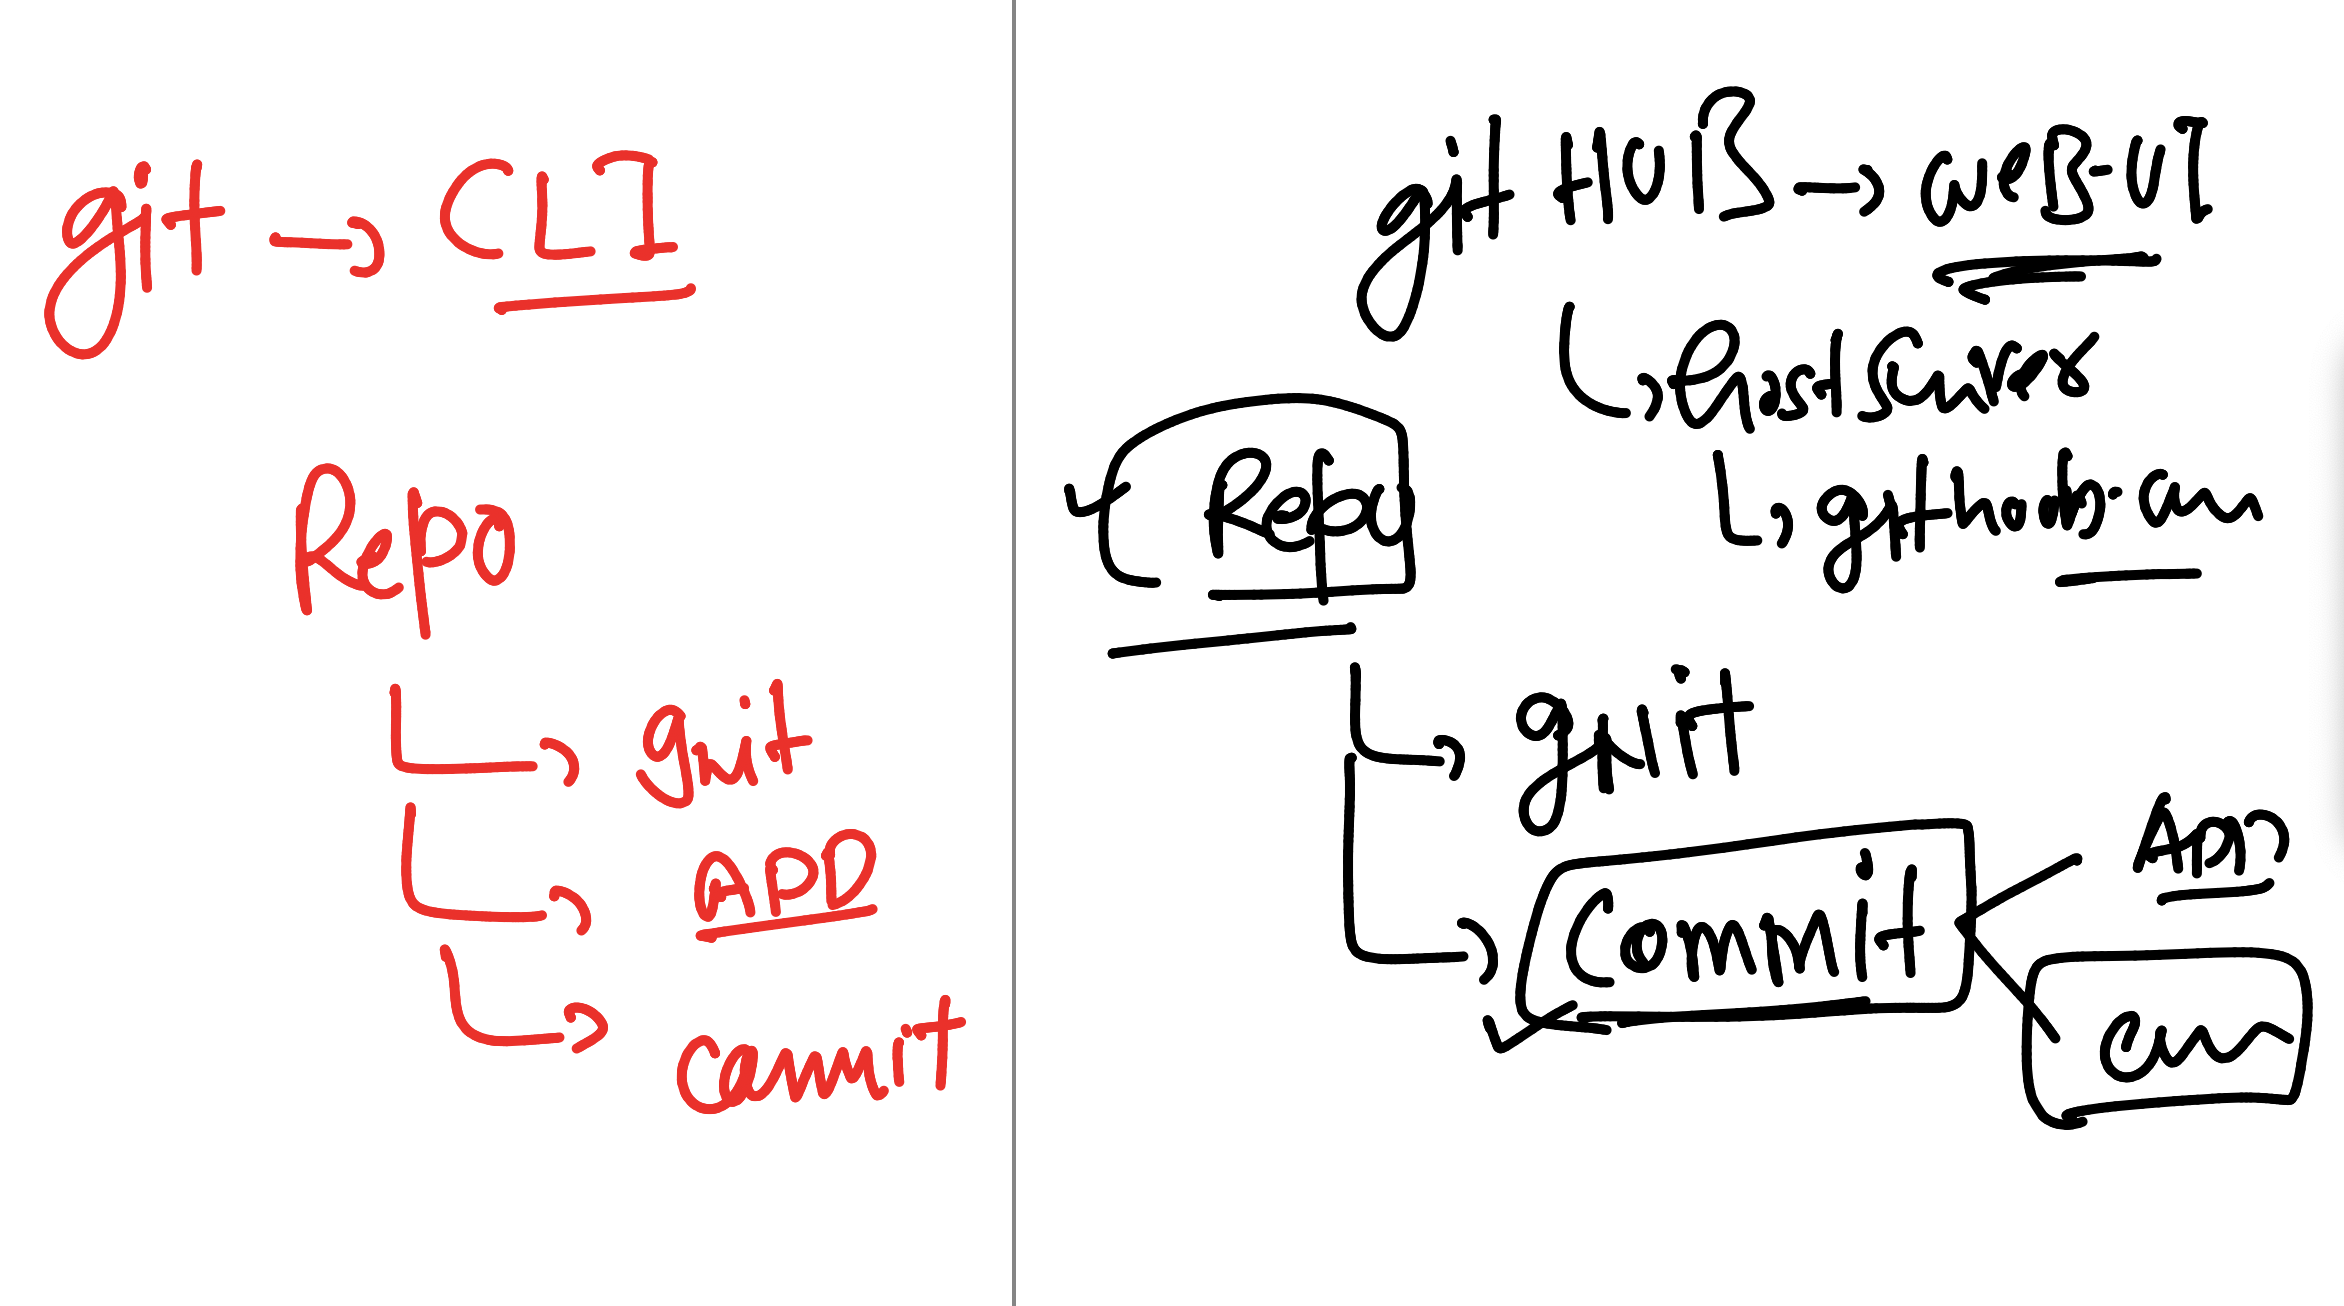 git → CLI
Repo
gnit
ADD
commit
git HUB → WEB-UI
Host Server
github.com
Repo
gnit
Commit
ADD
cm